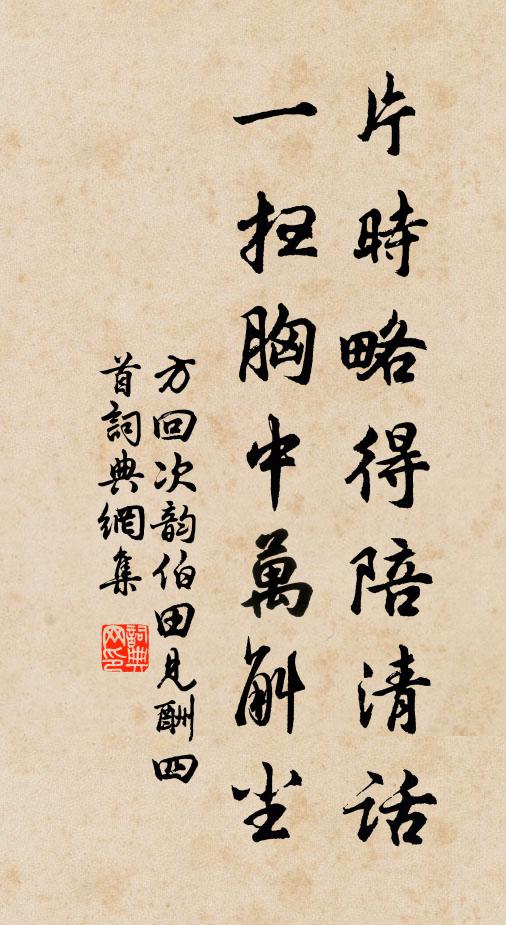 片時略得陪清話
一扫胸中萬斛尘
方回次韵伯田見酬四
首詞典網集
詞典网印